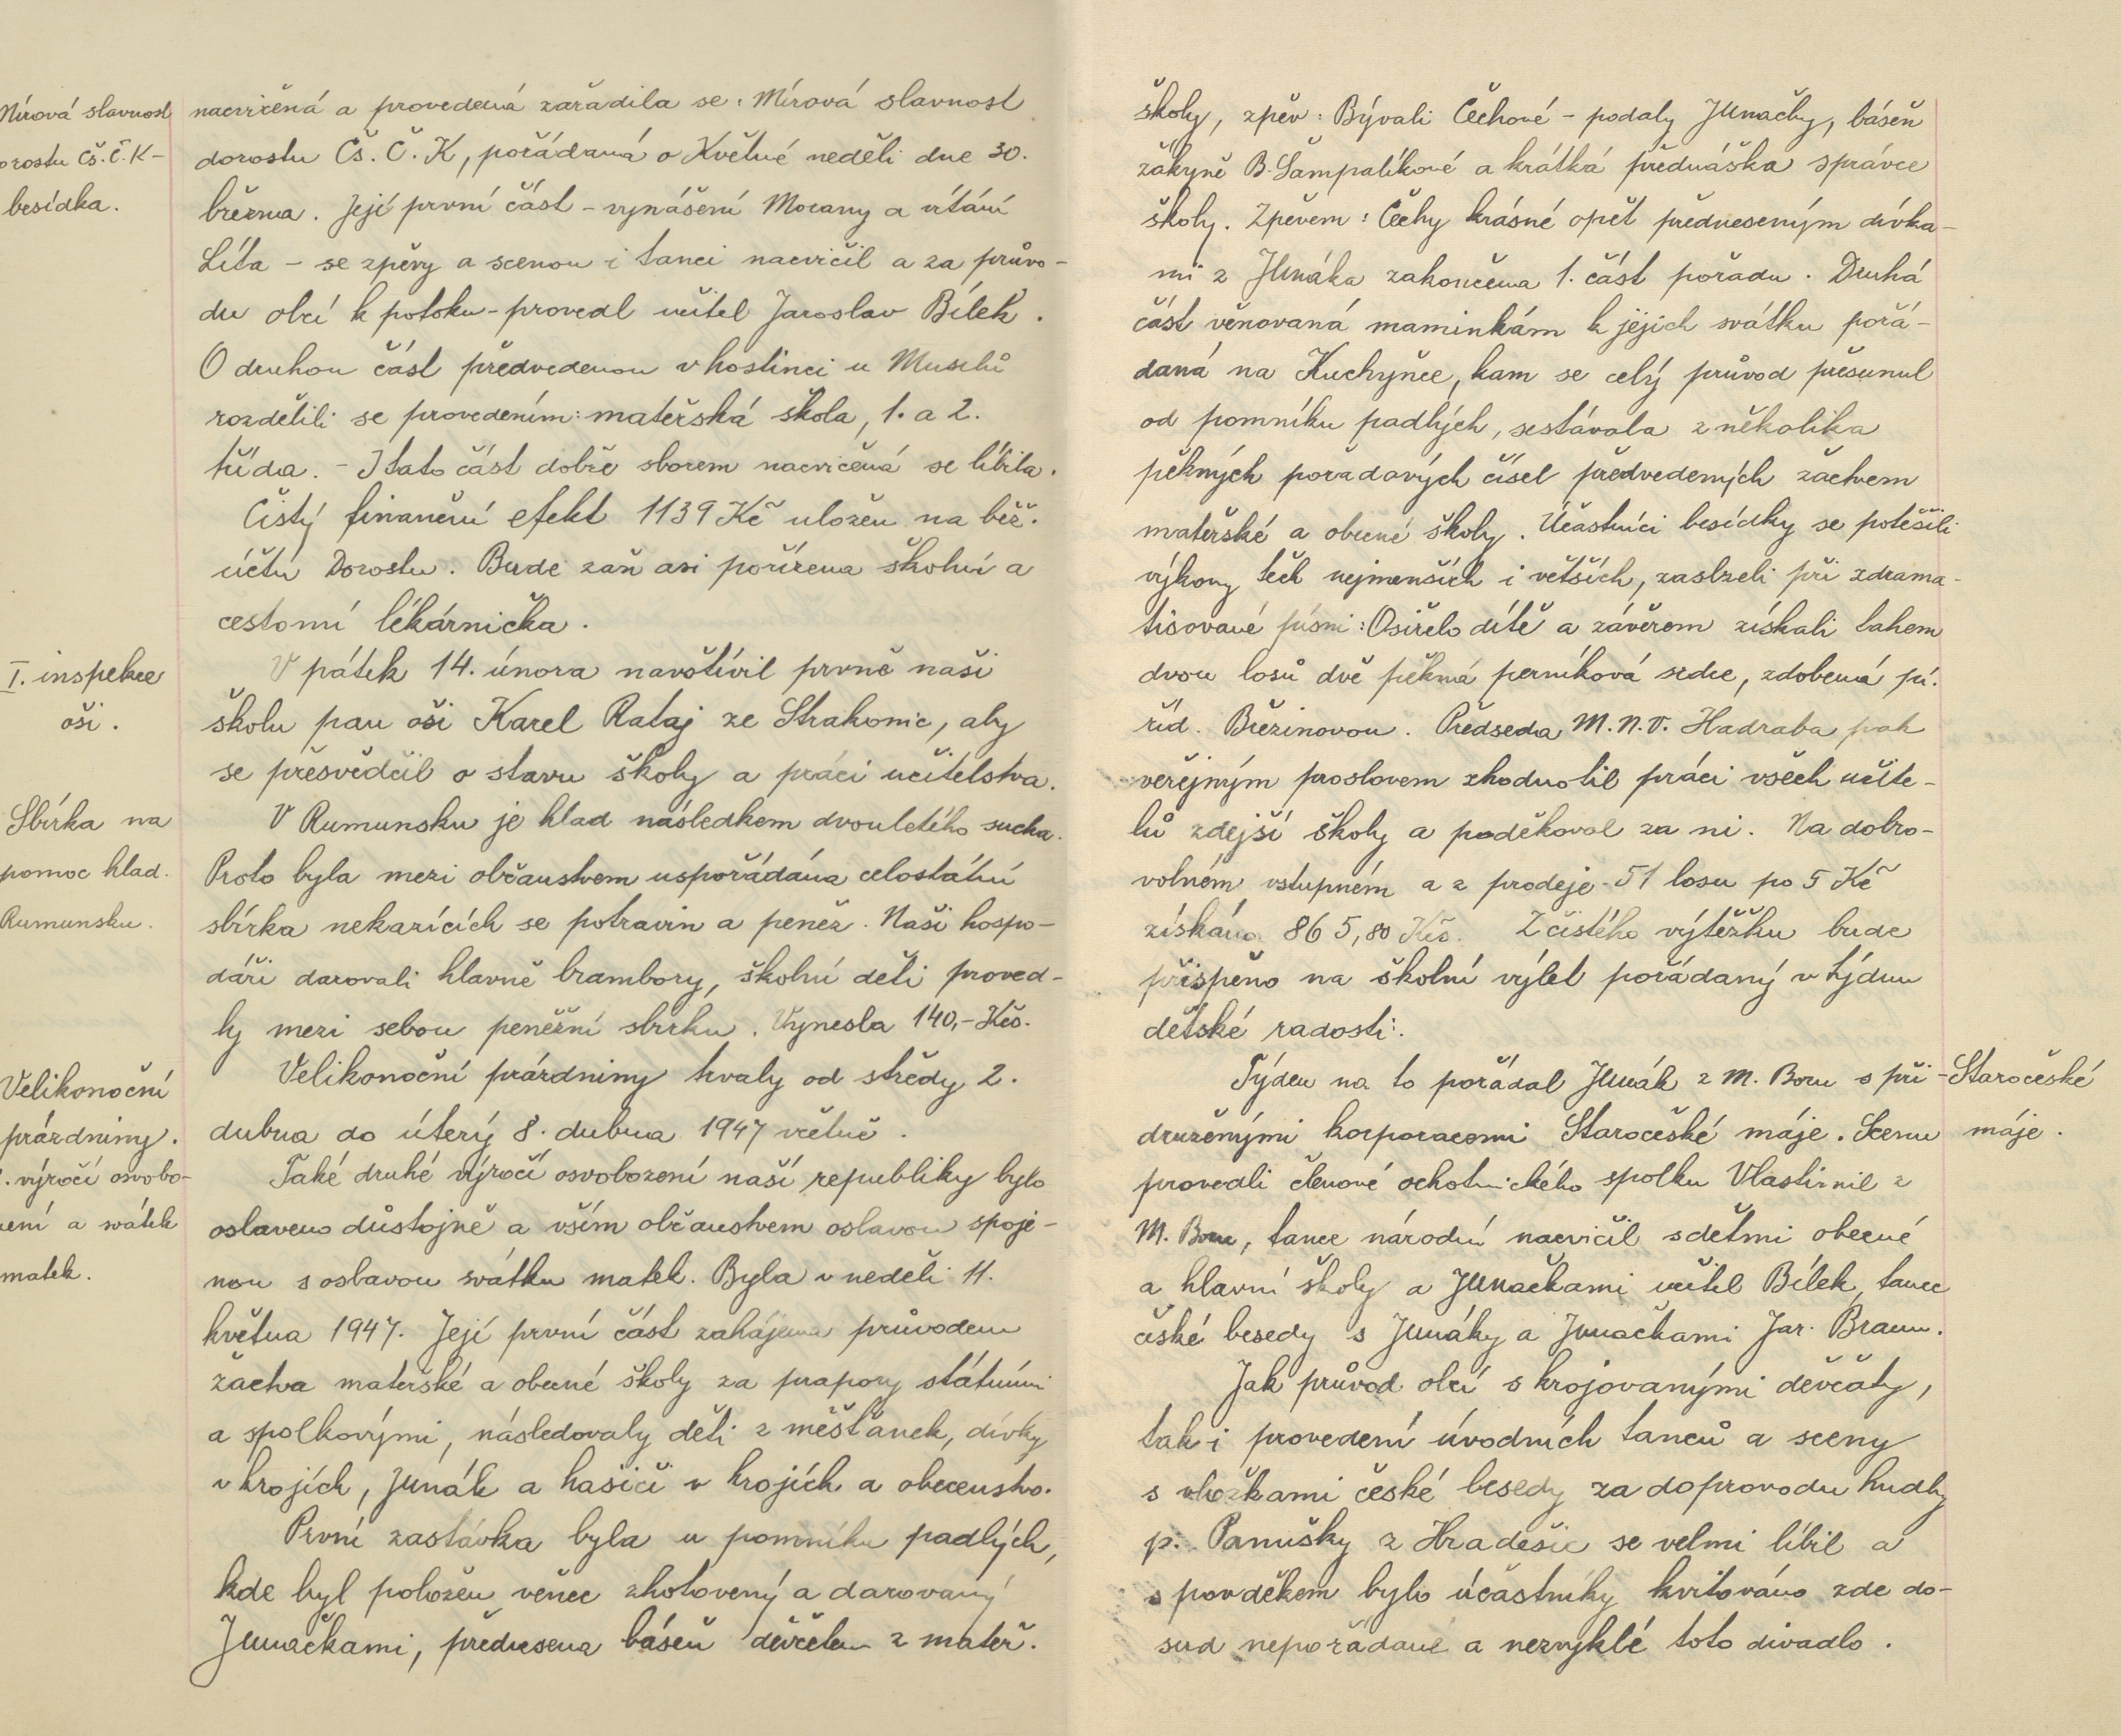 Mírová slavnost
dorostu Čs.Č.K-
besídka.
nacvičená a provedená zařadila se: Mírová slavnost
dorostu Čs. Č. K, pořádaná o Květné neděli dne 30.
března. Její první část - vynášení Morany a vítání
Líta - se zpěvy a scenou i tanci nacvičil a za průvo-
du obcí k potoku - provedl učitel Jaroslav Bílek.
O druhou část předvedenou v hostinci u Musilů
rozdělili se provedením: mateřská škola, 1. a 2.
třída. - I tato část dobře sborem nacvičená se líbila.
Čistý finanční efekt 1139 Kč uložen na běž.
účtu Dorostu. Bude zaň asi pořízena školní a
cestovní lékárnička.
I. inspekce
oši.
V pátek 14. února navštívil prvně naši
školu pan oši Karel Rataj ze Strakonic, aby
se přesvědčil o stavu školy a práci učitelstva.
Sbírka na
pomoc hlad.
Rumunsku.
V Rumunsku je hlad následkem dvouletého sucha.
Proto byla mezi občanstvem uspořádána celostátní
sbírka nekazících se potravin a peněz. Naši hospo-
dáři darovali hlavně brambory, školní děti proved-
ly mezi sebou peněžní sbírku. Vynesla 140,- Kčs.
Velikonoční
prázdniny.
Velikonoční prázdniny trvaly od středy 2.
dubna do úterý 8. dubna 1947 včetně.
. výročí osvobo-
zení a svátek
matek.
Také druhé výročí osvobození naší republiky bylo
oslaveno důstojně a vším občanstvem oslavou spoje-
nou s oslavou svátku matek. Byla v neděli 11.
května 1947. Její první část zahájena průvodem
žactva mateřské a obecné školy za prapory státními
a spolkovými, následovaly děti z měšťanek, dívky
v krojích, Junák a hasiči v krojích a obecenstvo.
První zastávka byla u pomníku padlých,
kde byl položen věnec zhotovený a darovaný
Junačkami, přednesena báseň děvčetem z mateř.
školy, zpěv: Bývali Čechové - podaly Junačky, báseň
žákyně B. Šampalíkové a krátká přednáška správce
školy. Zpěvem: Čechy krásné opět předneseným dívka-
mi z Junáka zakončena 1. část pořadu. Druhá
část věnovaná maminkám k jejich svátku pořá-
daná na Kuchyňce, kam se celý průvod přesunul
od pomníku padlých, sestávala z několika
pěkných pořadových čísel předvedených žactvem
mateřské a obecné školy. Účastníci besídky se potěšili
výkony těch nejmenších i větších, zaslzeli při zdrama-
tisované písni: Osiřelo dítě a závěrem získali tahem
dvou losů dvě pěkná perníková srdce, zdobená pí.
říd. Březinovou. Předseda M.N.V. Hadraba pak
veřejným proslovem zhodnotil práci všech učite-
lů zdejší školy a poděkoval za ni. Na dobro-
volném vstupném a z prodeje 51 losu po 5 Kč
získáno 865,80 Kčs. Z čistého výtěžku bude
přispěno na školní výlet pořádaný v týdnu
dětské radosti.
Týden na to pořádal Junák z M. Boru s při-
druženými korporacemi Staročeské máje. Scenu
provedli členové ochotnického spolku Vlastimil z
M. Boru, tance národní nacvičil s dětmi obecné
a hlavní školy a Junačkami učitel Bílek, tance
české besedy s Junáky a Junačkami Jar. Braun.
Staročeské
máje.
Jak průvod obcí s krojovanými děvčaty,
tak i provedení úvodních tanců a sceny
s vložkami české besedy za doprovodu hudby
p. Panušky z Hradešic se velmi líbil a
s povděkem bylo účastníky kvitováno zde do-
sud nepořádané a nezvyklé toto divadlo.